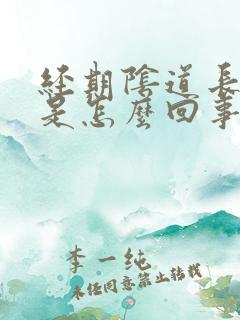 經期陰道長
是怎麼回事
李一純
未經同意禁止轉載